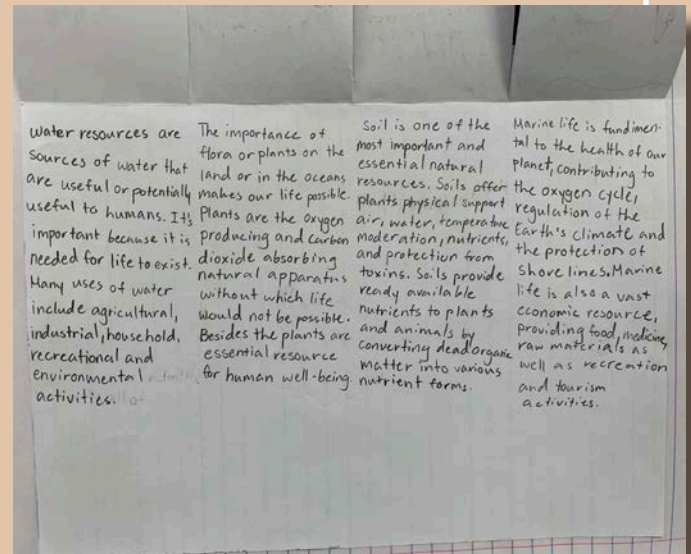 Water resources are
sources of water that
are useful or potentially
useful to humans. It's
important because it is
needed for life to exist.
Many uses of water
include agricultural,
industrial, household,
recreational and
environmental
activities.
The importance of
flora or plants on the
land or in the oceans
makes our life possible.
Plants are the oxygen
producing and carbon
dioxide absorbing
natural apparatus
without which life
would not be possible.
Besides the plants are
essential resource
for human well-being.
Soil is one of the
most important and
essential natural
resources. Soils offer
plants physical support
air, water, temperature
moderation, nutrients,
and protection from
toxins. Soils provide
ready available
nutrients to plants
and animals by
converting dead organic
matter into various
nutrient forms.
Marine life is fundimen-
tal to the health of our
planet, contributing to
the oxygen cycle,
regulation of the
Earth's climate and
the protection of
shore lines. Marine
life is also a vast
economic resource,
providing food, medicine,
raw materials as
well as recreation
and tourism
activities.